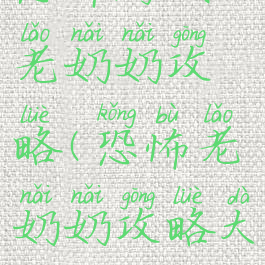 lǎo nǎi nǎi gōng
老奶奶攻
lüè kǒng bù lǎo
略(恐怖老
nǎi nǎi gōng lüè dà
奶奶攻略大